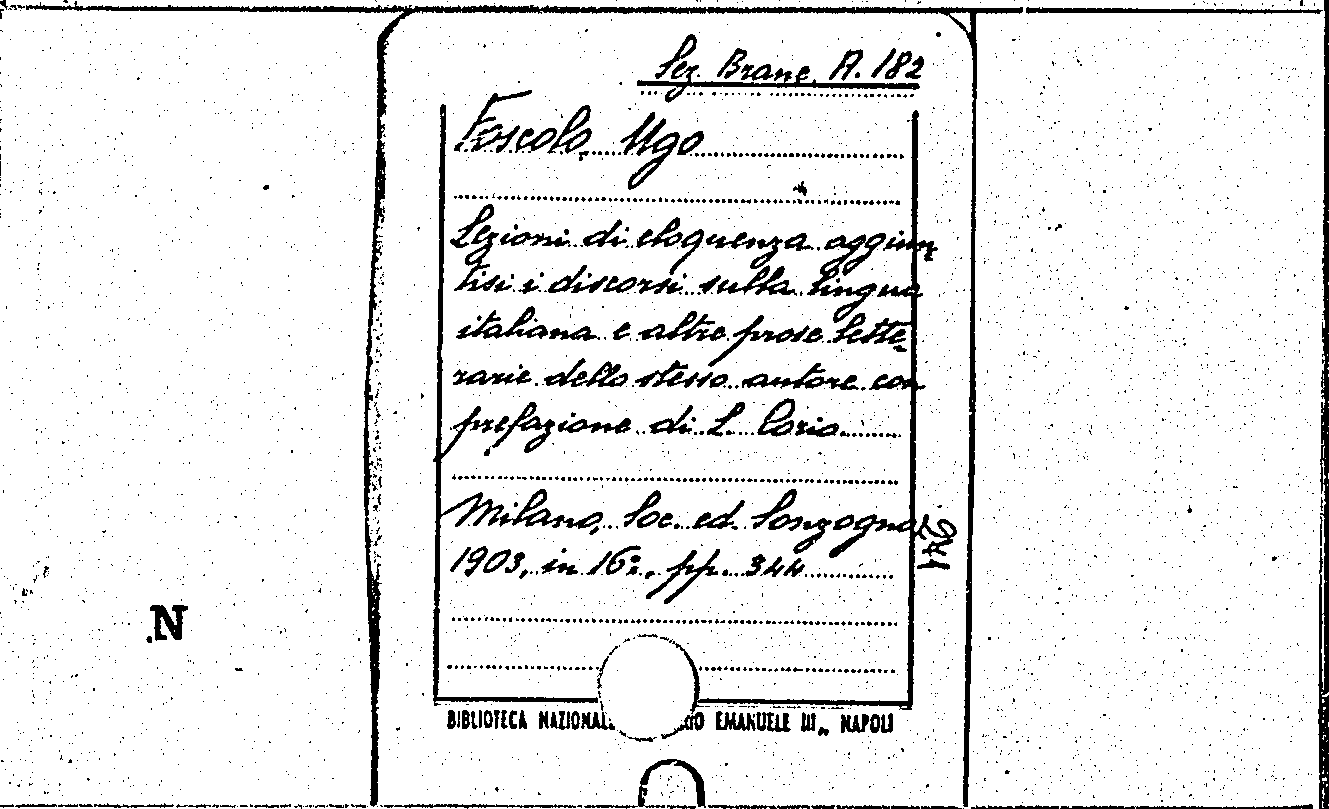 Sez. Branc. A. 182
Foscolo, Ugo
Lezioni di eloquenza aggiun
tisi i discorsi sulla lingua
italiana e altre prose lette-
rarie dello stesso autore con
prefazione di L. Corio.
Milano, Soc. ed. Sonzogno
1903, in 16º, pp. 344
N
BIBLIOTECA NAZIONALE EMANUELE III„ NAPOLI